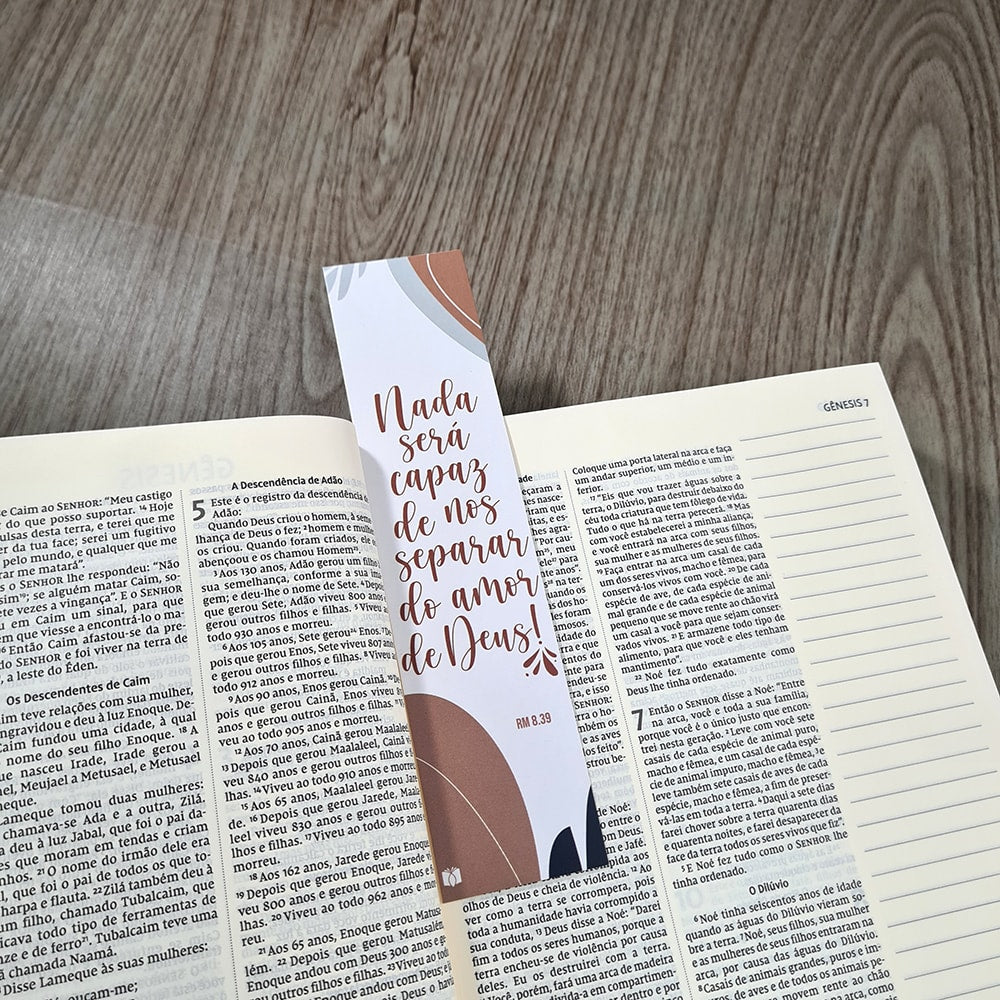 Nada
será
capaz
de nos
separar
do amor
de Deus!
RM 8.39
GÊNESIS 7
se Caim ao SENHOR: "Meu castigo
do que posso suportar. 14 Hoje
ulsas desta terra, e terei que me
er da tua face; serei um fugitivo
pelo mundo, e qualquer que me
rar me matará".
o SENHOR lhe respondeu: "Não
se alguém matar Caim,
ete vezes a vingança". E o SENHOR
em Caim um sinal, para que
em que viesse a encontrá-lo o ma-
16 Então Caim afastou-se da pre-
do SENHOR e foi viver na terra de
, a leste do Éden.
Os Descendentes de Caim
aim teve relações com sua mulher,
engravidou e deu à luz Enoque. De-
Caim fundou uma cidade, à qual
nome do seu filho Enoque. 18 A
nasceu Irade, Irade gerou a
el, Meujael a Metusael, e Metusael
meque.
eque tomou duas mulheres:
chamava-se Ada e a outra, Zilá.
deu à luz Jabal, que foi o pai da-
que moram em tendas e criam
21 O nome do irmão dele era
, que foi o pai de todos os que to-
harpa e flauta. 22 Zilá também deu à
m filho, chamado Tubalcaim, que
icava todo tipo de ferramentas de
ze e de ferro, Tubalcaim teve uma
chamada Naamá.
Disse Lameque às suas mulheres:
A Descendência de Adão
5 Este é o registro da descendência de
Adão:
Quando Deus criou o homem, à seme-
lhança de Deus o fez; 2 homem e mulher
os criou. Quando foram criados, ele os
abençoou e os chamou Homem.
3 Aos 130 anos, Adão gerou um filho à
sua semelhança, conforme a sua ima-
gem; e deu-lhe o nome de Sete. 4 Depois
que gerou Sete, Adão viveu 800 anos e
gerou outros filhos e filhas. 5 Viveu ao
todo 930 anos e morreu.
6 Aos 105 anos, Sete gerou Enos. 7 De-
pois que gerou Enos, Sete viveu 807 anos
e gerou outros filhos e filhas. 8 Viveu ao
todo 912 anos e morreu.
9 Aos 90 anos, Enos gerou Cainã. 10 De-
pois que gerou Cainã, Enos viveu
anos e gerou outros filhos e filhas.
veu ao todo 905 anos e morreu.
12 Aos 70 anos, Cainã gerou Maalaleel.
13 Depois que gerou Maalaleel, Cainã
veu 840 anos e gerou outros filhos e
lhas. 14 Viveu ao todo 910 anos e morreu.
15 Aos 65 anos, Maalaleel gerou Jare-
de. 16 Depois que gerou Jarede, Maala-
leel viveu 830 anos e gerou outros
lhos e filhas. 17 Viveu ao todo 895 anos
morreu.
18 Aos 162 anos, Jarede gerou Enoque.
19 Depois que gerou Enoque, Jarede
veu 800 anos e gerou outros filhos
lhas. 20 Viveu ao todo 962 anos e mor-
reu.
21 Aos 65 anos, Enoque gerou Matusa-
lém. 22 Depois que gerou Matusalém,
Enoque andou com Deus 300 anos
outros filhos e filhas. 23 Viveu ao todo
Enoque andou com Deus; e
olhos de Deus e cheia de violência. 12 Ao
ver como a terra se corrompera, pois
toda a humanidade havia corrompido a
sua conduta, 13 Deus disse a Noé: "Darei
fim a todos os seres humanos, porque a
terra encheu-se de violência por causa
deles. Eu os destruirei com a terra.
14 Você, porém, fará uma arca de madeira
divida-a em compartimen-
Coloque uma porta lateral na arca e faça
um andar superior, um médio e um in-
ferior.
17 "Eis que vou trazer águas sobre a
terra, o Dilúvio, para destruir debaixo do
céu toda criatura que tem fôlego de vida.
Tudo o que há na terra perecerá. 18 Mas
com você estabelecerei a minha aliança,
e você entrará na arca com seus filhos,
sua mulher e as mulheres de seus filhos.
19 Faça entrar na arca um casal de cada
um dos seres vivos, macho e fêmea, para
conservá-los vivos com você. 20 De cada
espécie de ave, de cada espécie de ani-
mal grande e de cada espécie de animal
pequeno que se move rente ao chão virá
um casal a você para que sejam conser-
vados vivos. 21 E armazene todo tipo de
alimento, para que você e eles tenham
mantimento".
22 Noé fez tudo exatamente como
Deus lhe tinha ordenado.
7 Então o SENHOR disse a Noé: "Entre
na arca, você e toda a sua família,
porque você é o único justo que encon-
trei nesta geração. 2 Leve com você sete
casais de cada espécie de animal puro,
macho e fêmea, e um casal de cada espé-
cie de animal impuro, macho e fêmea, 3 e
leve também sete casais de aves de cada
espécie, macho e fêmea, a fim de preser-
vá-las em toda a terra. 4 Daqui a sete dias
farei chover sobre a terra quarenta dias
e quarenta noites, e farei desaparecer da
face da terra todos os seres vivos que fiz".
5 E Noé fez tudo como o SENHOR lhe
tinha ordenado.
O Dilúvio
6 Noé tinha seiscentos anos de idade
quando as águas do Dilúvio vieram so-
bre a terra. 7 Noé, seus filhos, sua mulher
e as mulheres de seus filhos entraram na
arca, por causa das águas do Dilúvio.
8 Casais de animais grandes, puros e im-